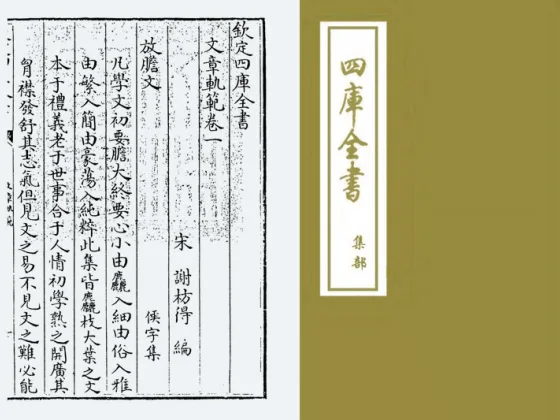 欽定四庫全書
文章軌範卷一
宋 謝枋得 編
放膽文
侯字集
凡學文初要膽大終要心小由麤入細由俗入雅
由繁入簡由豪蕩入純粹此集皆麤枝大葉之文
本于禮義老于世事合于人情初學熟之開廣其
胷襟發舒其志氣但見文之易不見文之難必能
四庫全書
集部